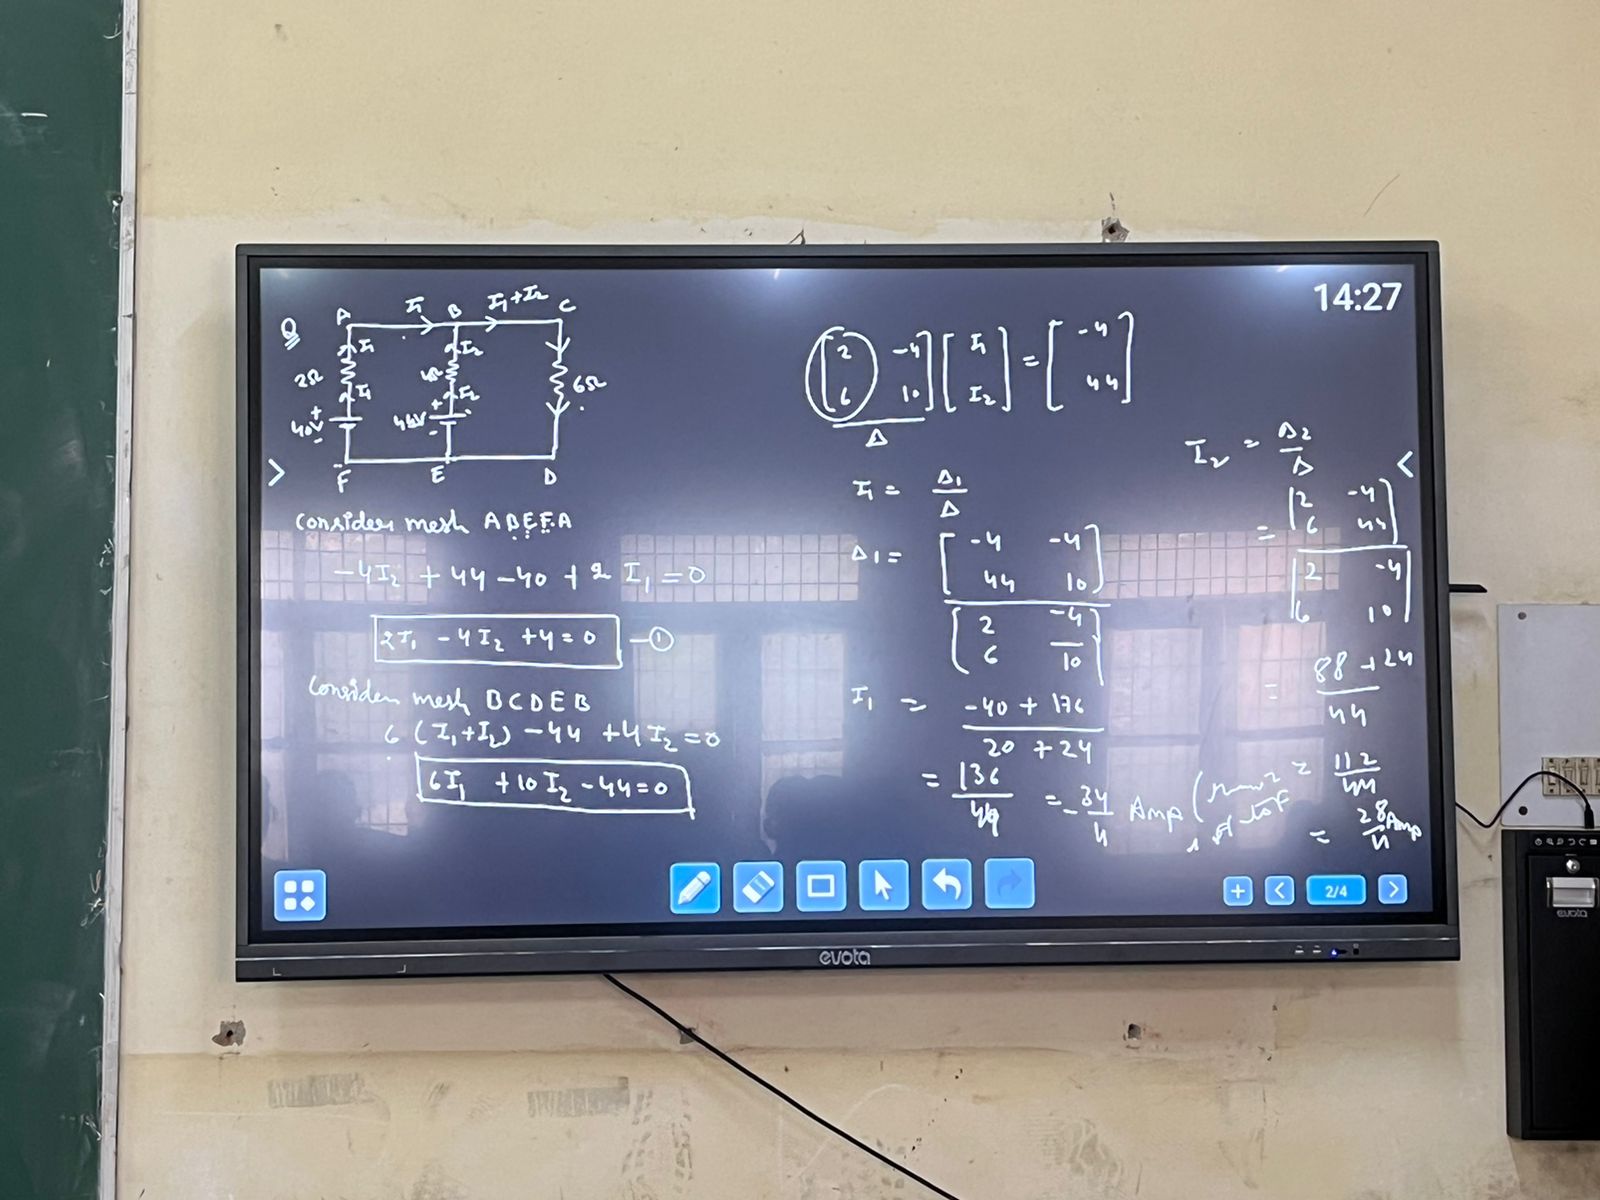 14:27
Q
A I₁ B I₁+I₂ C
I₁ I₂
2Ω 4Ω 6Ω
I₁ I₂
+ +
40V 44V
- -
F E D
Consider mesh ABEFA
-4I₂ + 44 - 40 + 2 I₁ = 0
2I₁ - 4I₂ + 4 = 0 - ①
Consider mesh BCDEB
6 (I₁+I₂) - 44 + 4I₂ = 0
6I₁ + 10I₂ - 44 = 0
[2 -4] [I₁] = [-4]
[6 10] [I₂] [44]
Δ
I₁ = Δ₁/Δ
Δ₁ =
[-4 -4]
[44 10]
[2 -4]
[6 10]
I₁ = -40 + 176
20 + 24
= 136/44 = 34/11 Amp
I₂ = Δ₂/Δ
= |2 -4|
|6 44|
|2 -4|
|6 10|
= 88 + 24
44
= 112/44
= 28/11 Amp
2/4
evota
evota